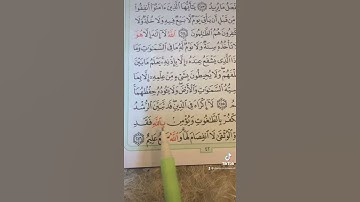 يَٰٓأَيُّهَا ٱلَّذِينَ ءَامَنُوٓا۟ أَنفِقُوا۟
مِن قَبْلِ أَن يَأْتِىَ يَوْمٌ لَّا بَيْعٌ فِيهِ وَلَا خُلَّةٌ وَلَا
هُمُ ٱلظَّٰلِمُونَ ٢٥٤ ٱللَّهُ لَآ إِلَٰهَ إِلَّا هُوَ
تَأْخُذُهُۥ سِنَةٌ وَلَا نَوْمٌ لَّهُۥ مَا فِى ٱلسَّمَٰوَٰتِ وَمَا
يَشْفَعُ عِندَهُۥٓ إِلَّا بِإِذْنِهِۦ يَعْلَمُ مَا بَيْنَ
وَلَا يُحِيطُونَ بِشَىْءٍ مِّنْ عِلْمِهِۦٓ إِلَّا بِمَا
ٱلسَّمَٰوَٰتِ وَٱلْأَرْضَ وَلَا يَـُٔودُهُۥ حِفْظُهُمَا
لَآ إِكْرَاهَ فِى ٱلدِّينِ قَد تَّبَيَّنَ ٱلرُّشْدُ
يَكْفُرْ بِٱلطَّٰغُوتِ وَيُؤْمِنۢ بِٱللَّهِ فَقَدِ
ٱلْوُثْقَىٰ لَا ٱنفِصَامَ لَهَا وَٱللَّهُ عَلِيمٌ ٢٥٦
TikTok